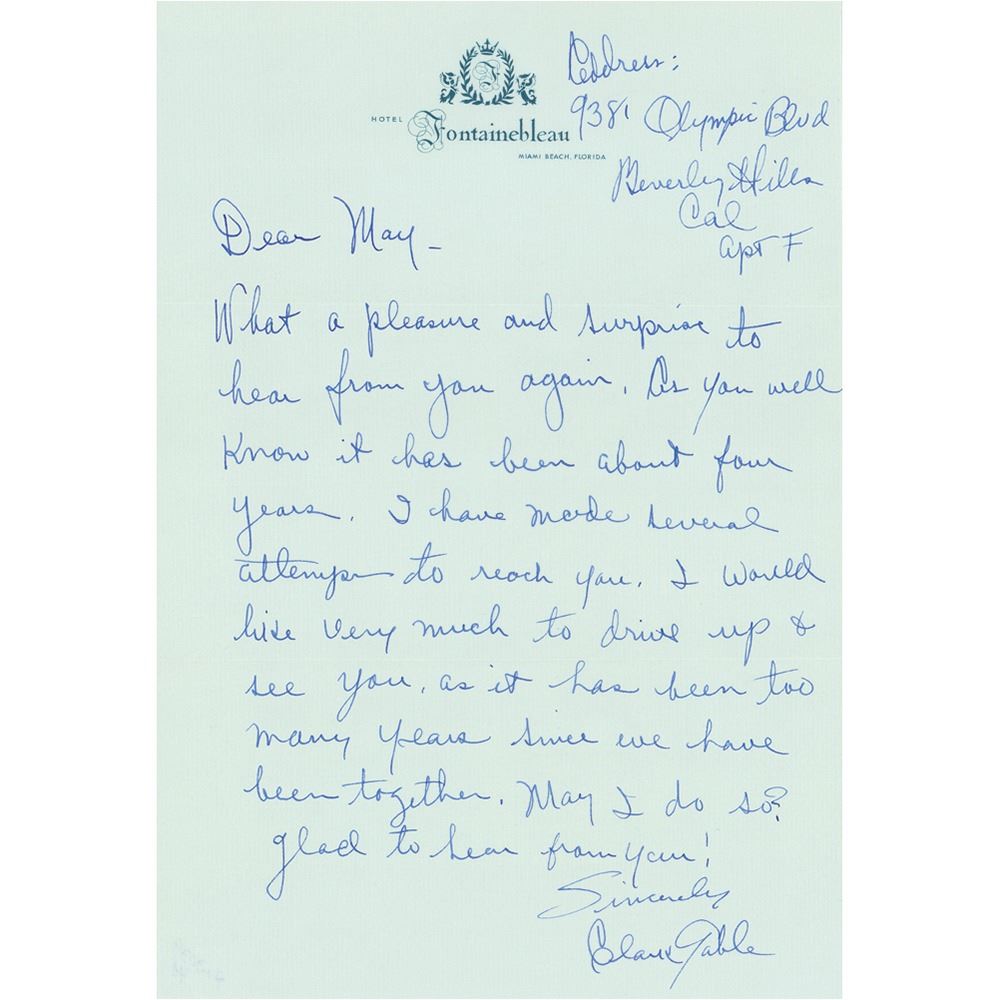 HOTEL Fontainebleau
MIAMI BEACH, FLORIDA
Address:
9381 Olympic Blvd
Beverly Hills
Cal
Apt F
Dear May –
What a pleasure and surprise to
hear from you again. As you well
know it has been about four
years. I have made several
attemps to reach you. I would
like very much to drive up &
see you, as it has been too
many years since we have
been together. May I do so?
glad to hear from you!
Sincerely
Clark Gable